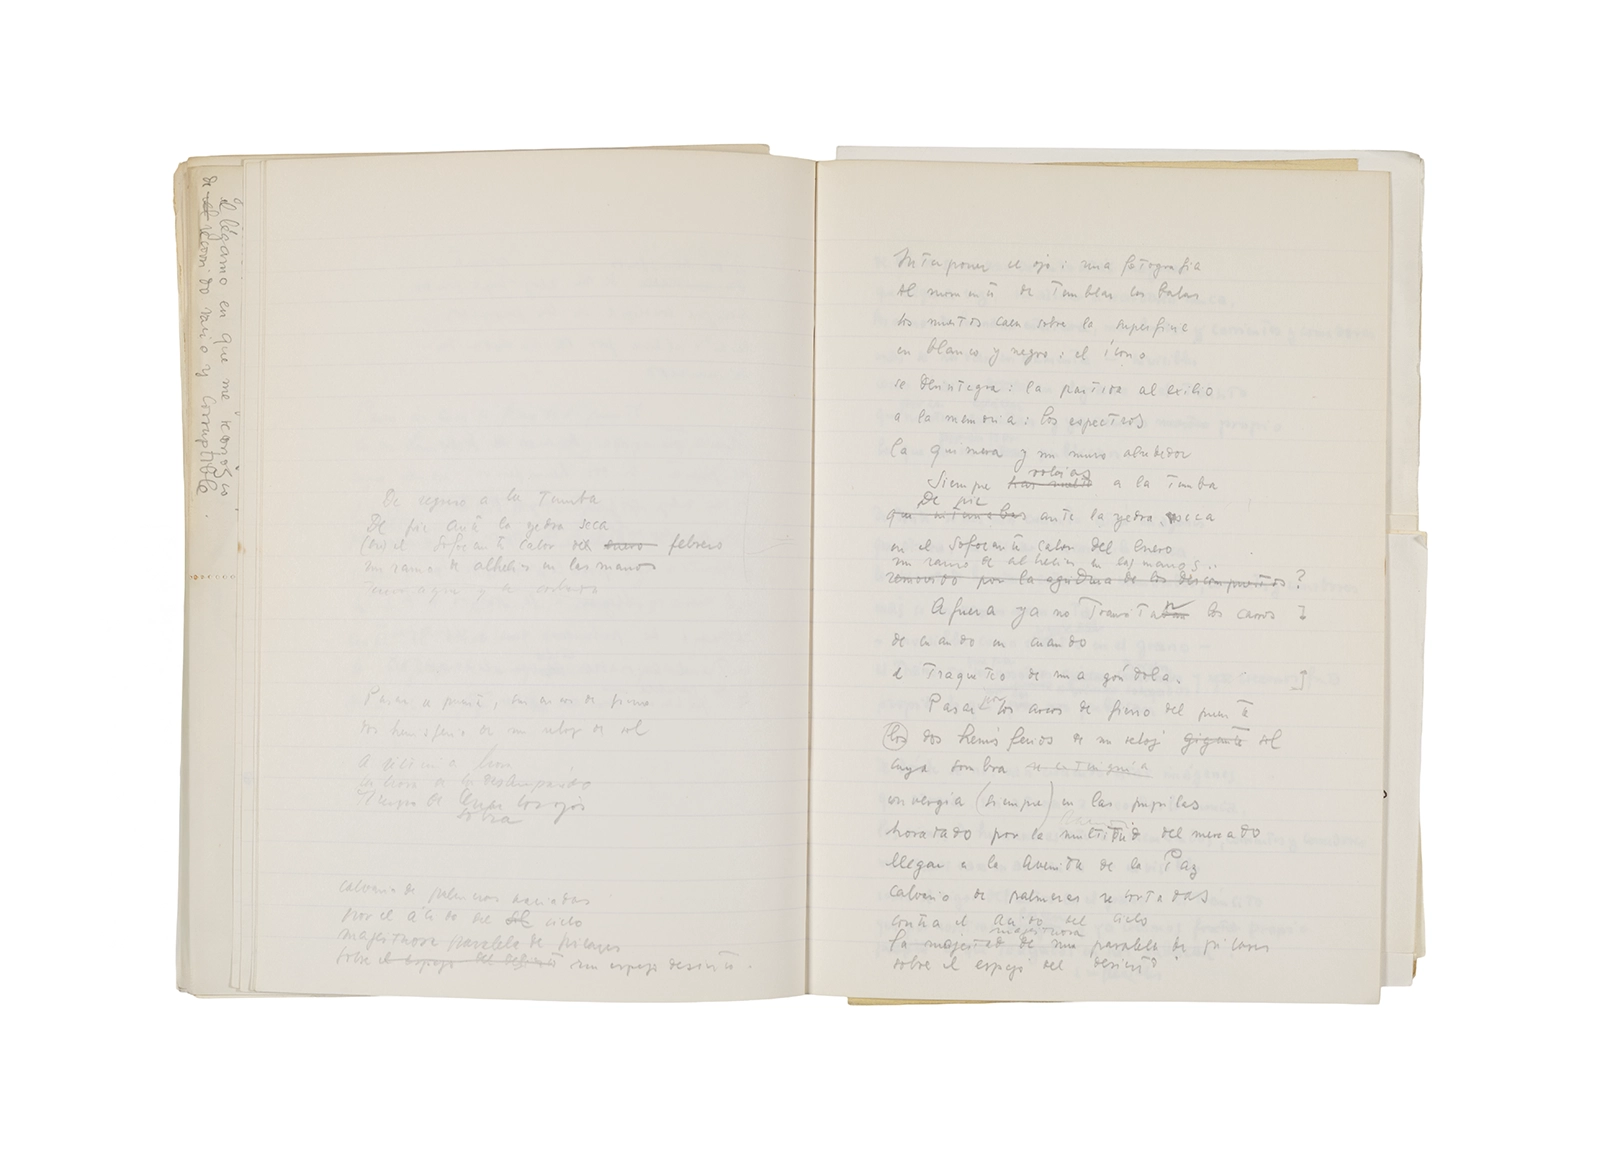 El légamo en que me reconozco
de el recorrido vacío y corruptible.
De regreso a la Tumba
De pie ante la yedra seca
(en) el sofocante calor del enero febrero
un ramo de alhelíes en las manos
dos hemisferios de un reloj de sol
los desamparados
Tiempo de los ojos
calvario de palmeras
por el ácido del cielo
majestuosa paralela de pilares
sobre el espejo del desierto un espejo desierto.
Interponer el ojo: una fotografía
al momento de temblar las balas
los muertos caen sobre la superficie
en blanco y negro: el ícono
se desintegra: la partida al exilio
a la memoria: los espectros
la quimera y un muro alrededor
volvías
Siempre has vuelto a la Tumba
De pie
ante la yedra seca
en el sofocante calor del Enero
un ramo de alhelíes en las manos
removido por la de los descompuestos?
Afuera ya no Transitan los carros
de cuando en cuando
el Traqueteo de una góndola.
Pasar por los arcos de fierro del puente
(los) dos hemisferios de un reloj gigante sol
cuya sombra se extinguía
convergía (siempre) en las pupilas
horadado por la multitud del mercado
llegar a la Avenida de la Paz
calvario de palmeras recortadas
contra el Ácido del cielo
majestuosa
la majestad de una paralela de pilares
sobre el espejo del desierto